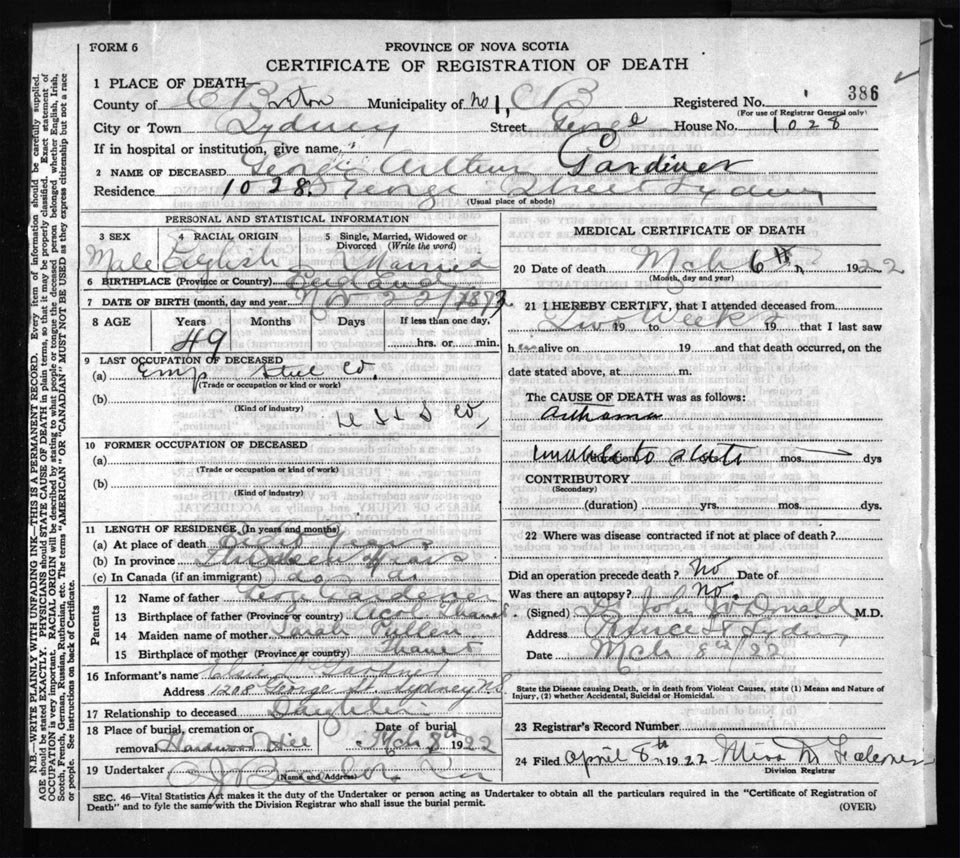 FORM 6
PROVINCE OF NOVA SCOTIA
CERTIFICATE OF REGISTRATION OF DEATH
386
1 PLACE OF DEATH—
County of C Breton Municipality of No 1, CB Registered No.
(For use of Registrar General only)
City or Town Sydney Street George House No. 1028
If in hospital or institution, give name,
2 NAME OF DECEASED George Arthur Gardiner
Residence 1028 George Street Sydney
(Usual place of abode)
PERSONAL AND STATISTICAL INFORMATION
3 SEX 4 RACIAL ORIGIN 5 Single, Married, Widowed or Divorced (Write the word)
Male English Married
6 BIRTHPLACE (Province or Country) England
7 DATE OF BIRTH (month, day and year)
8 AGE Years Months Days If less than one day,
49 hrs. or min.
9 LAST OCCUPATION OF DECEASED
(a) Emp Steel Co.
(Trade or occupation or kind of work)
(b)
(Kind of industry)
10 FORMER OCCUPATION OF DECEASED
(a)
(Trade or occupation or kind of work)
(b)
(Kind of industry)
11 LENGTH OF RESIDENCE (In years and months)
(a) At place of death Years
(b) In province Years
(c) In Canada (if an immigrant) do do
Parents
12 Name of father Geo Gardener
13 Birthplace of father (Province or country)
14 Maiden name of mother Sarah
15 Birthplace of mother (Province or country) Thanet
16 Informant's name
Address 1208 George St. Sydney N.S
17 Relationship to deceased Daughter
18 Place of burial, cremation or removal Hardwood Hill Date of burial Mch 8th 1922
19 Undertaker
(Name and Address)
MEDICAL CERTIFICATE OF DEATH
20 Date of death Mch 6th 1922
(Month, day and year)
21 I HEREBY CERTIFY, that I attended deceased from
Two Weeks 19 to 19 that I last saw
h alive on 19 and that death occurred, on the
date stated above, at m.
The CAUSE OF DEATH was as follows:
Asthma
unable to state mos. dys
CONTRIBUTORY
(Secondary)
(duration) yrs. mos. dys.
22 Where was disease contracted if not at place of death?
Did an operation precede death? No Date of
Was there an autopsy? No.
(Signed) Dr John J Donald M.D.
Address Prince St Sydney
Date Mch 8th/22
State the Disease causing Death, or in death from Violent Causes, state (1) Means and Nature of
Injury, (2) whether Accidental, Suicidal or Homicidal.
23 Registrar's Record Number
24 Filed April 8th 1922 Miss M
Division Registrar
SEC. 46—Vital Statistics Act makes it the duty of the Undertaker or person acting as Undertaker to obtain all the particulars required in the "Certificate of Registration of
Death" and to fyle the same with the Division Registrar who shall issue the burial permit. (OVER)
N.B.—WRITE PLAINLY WITH UNFADING INK—THIS IS A PERMANENT RECORD. Every item of information should be carefully supplied.
AGE should be stated EXACTLY. PHYSICIANS should STATE CAUSE OF DEATH in plain terms, so that it may be properly classified. Exact statement of
OCCUPATION is very important. RACIAL ORIGIN will be described by stating to what people or tongue the deceased person belonged whether English, Irish,
Scotch, French, German, Russian, Ruthenian, etc. The terms "AMERICAN" OR "CANADIAN" MUST NOT BE USED as they express citizenship but not a race
or people. See instructions on back of Certificate.